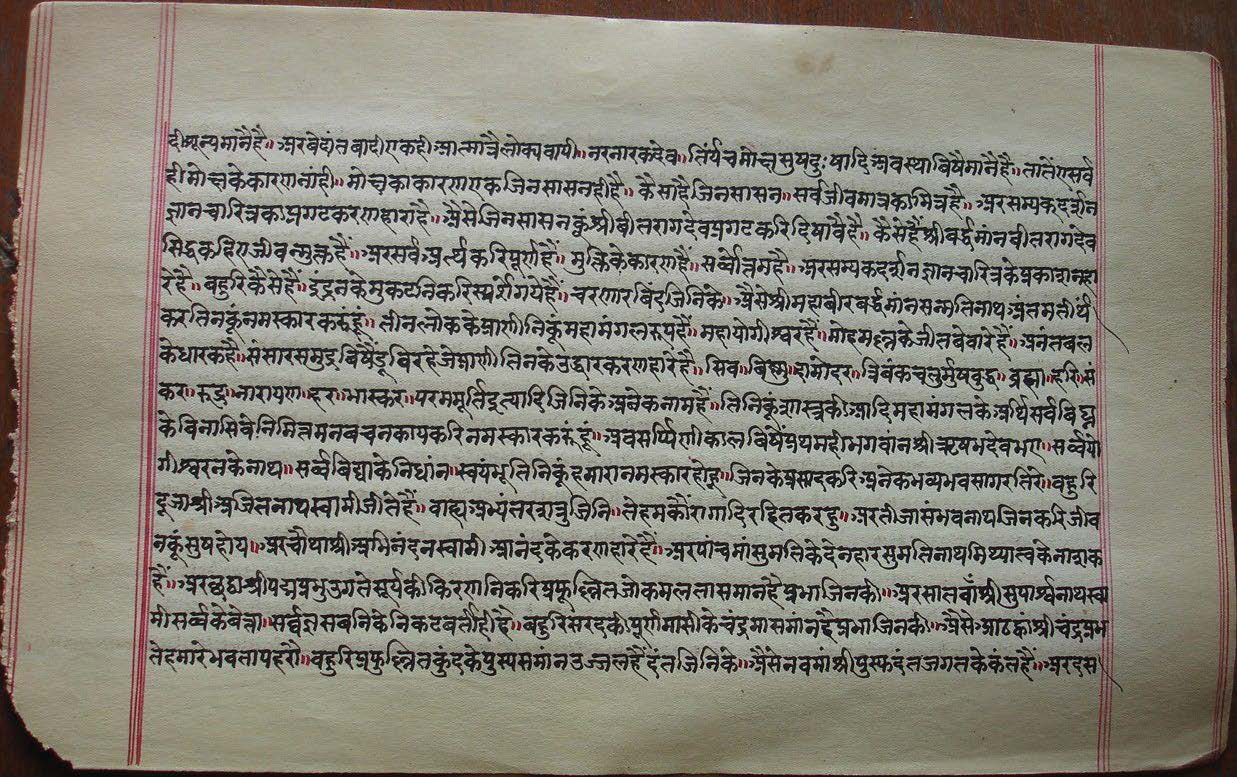 दीशून्यमानैहै॥ अरवेदांतवादीएकही आत्मात्रैलोक्यव्यापी॥ नरनारकदेव॥ तिर्यंचमोक्षसुषदुःषादिअवस्थाविषैमानैहै॥ तातैंएसर्व
हीमोक्षकेकारणनांही॥ मोक्षकाकारणएकजिनसासनहीहै॥ कैसाहैजिनसासन॥ सर्वजीवमात्रकामित्रहै॥ अरसम्यकदर्शन
ज्ञानचारित्रकाप्रगटकरणहाराहै॥ अैसेजिनसासनकुंश्रीवीतरागदेवप्रगटकरिदिषावैहै॥ कैसेहैंश्रीवर्द्धमांनवीतरागदेव
सिद्धकहिएजीवन्मुक्तहैं॥ अरसर्वअर्थकरिपूर्णहैं॥ मुक्तिकेकारणहैं॥ सर्वोत्तमहै॥ अरसम्यकदर्शनज्ञानचारित्रकेप्रकाशनहा
रेहै॥ बहुरिकैसेहैं॥ इंद्रनकेमुकटनिकरिस्पर्शेगयेहैं॥ चरणारविंदजिनिके॥ अैसेश्रीमहावीरवर्द्धमांनसन्मतिनाथ अंतमतीर्थं
करतिनकूंनमस्कारकरूंहूं॥ तीनलोककेप्राणीनिकूंमहामंगलरूपहैं॥ महायोगीश्वरहैं॥ मोहमल्लकेजीतवेवारेहैं॥ अनंतबल
केधारकहै॥ संसारसमुद्रविषैंडूविरहेजेप्राणीतिनकेउद्धारकरणहारेहै॥ सिव॥ विष्णु॥ दामोदर॥ त्रिवंकचतुर्मुषबुद्ध॥ ब्रह्मा॥ हरि॥ सं
कर॥ रुद्र॥ नारायण॥ हर॥ भास्कर॥ परममूर्तिइत्यादिजिनिके अनेकनामहैं॥ तिनिकूंशास्त्रकीआदिमहामंगलकेअर्थिसर्वविघ्न
केविनासिवेनिमितमनवचनकायकरिनमस्कारकरूंहूं॥ अवसर्प्पिणीकालविषैंप्रथमहीभगवांनश्रीऋषभदेवभए॥ सर्व्वयो
गीश्वरनकेनाथ॥ सर्व्वविद्याकेनिधांन॥ स्वयंभूतिनिकूंहमारानमस्कारहोहू॥ जिनकेप्रसादकरिअनेकभव्यभवसागरतिरे॥ बहुरि
दूजाश्रीअजितनाथस्वामीजीतेहैं॥ वाह्यअभ्यंतरशत्रुजिनि॥ तेहमकौंरागादिरहितकरहु॥ अरतीजासंभवनाथजिनकरिजीव
नकूंसुषहोय॥ अरचौथाश्रीअभिनंदनस्वामी आनंदकेकरणहारेहैं॥ अरपांचमांसुमतिकेदेनहारसुमतिनाथमिथ्यात्वकेनाशक
हैं॥ अरछठाश्रीपद्मप्रभुउगतेसूर्यकीकिरणनिकरिप्रफूल्लितजोकमलतासमानहैप्रभाजिनकी॥ अरसातवाँश्रीसुपार्श्वनाथस्वा
मीसर्व्वकेवेत्ता॥ सर्वज्ञसवनिकेनिकटवर्तीहीहै॥ बहुरिसरदकीपूर्णमासीकेचंद्रमासमांनहैप्रभाजिनकी॥ अैसेआठवांश्रीचंद्रप्रभ
तेहमारेभवतापहरौ॥ बहुरिप्रफुल्लितकुंदकेपुस्पसमांनउज्जलहैंदंतजिनिके॥ अैसेनवमांश्रीपुस्फदंतजगतकेकंतहैं॥ अरदस